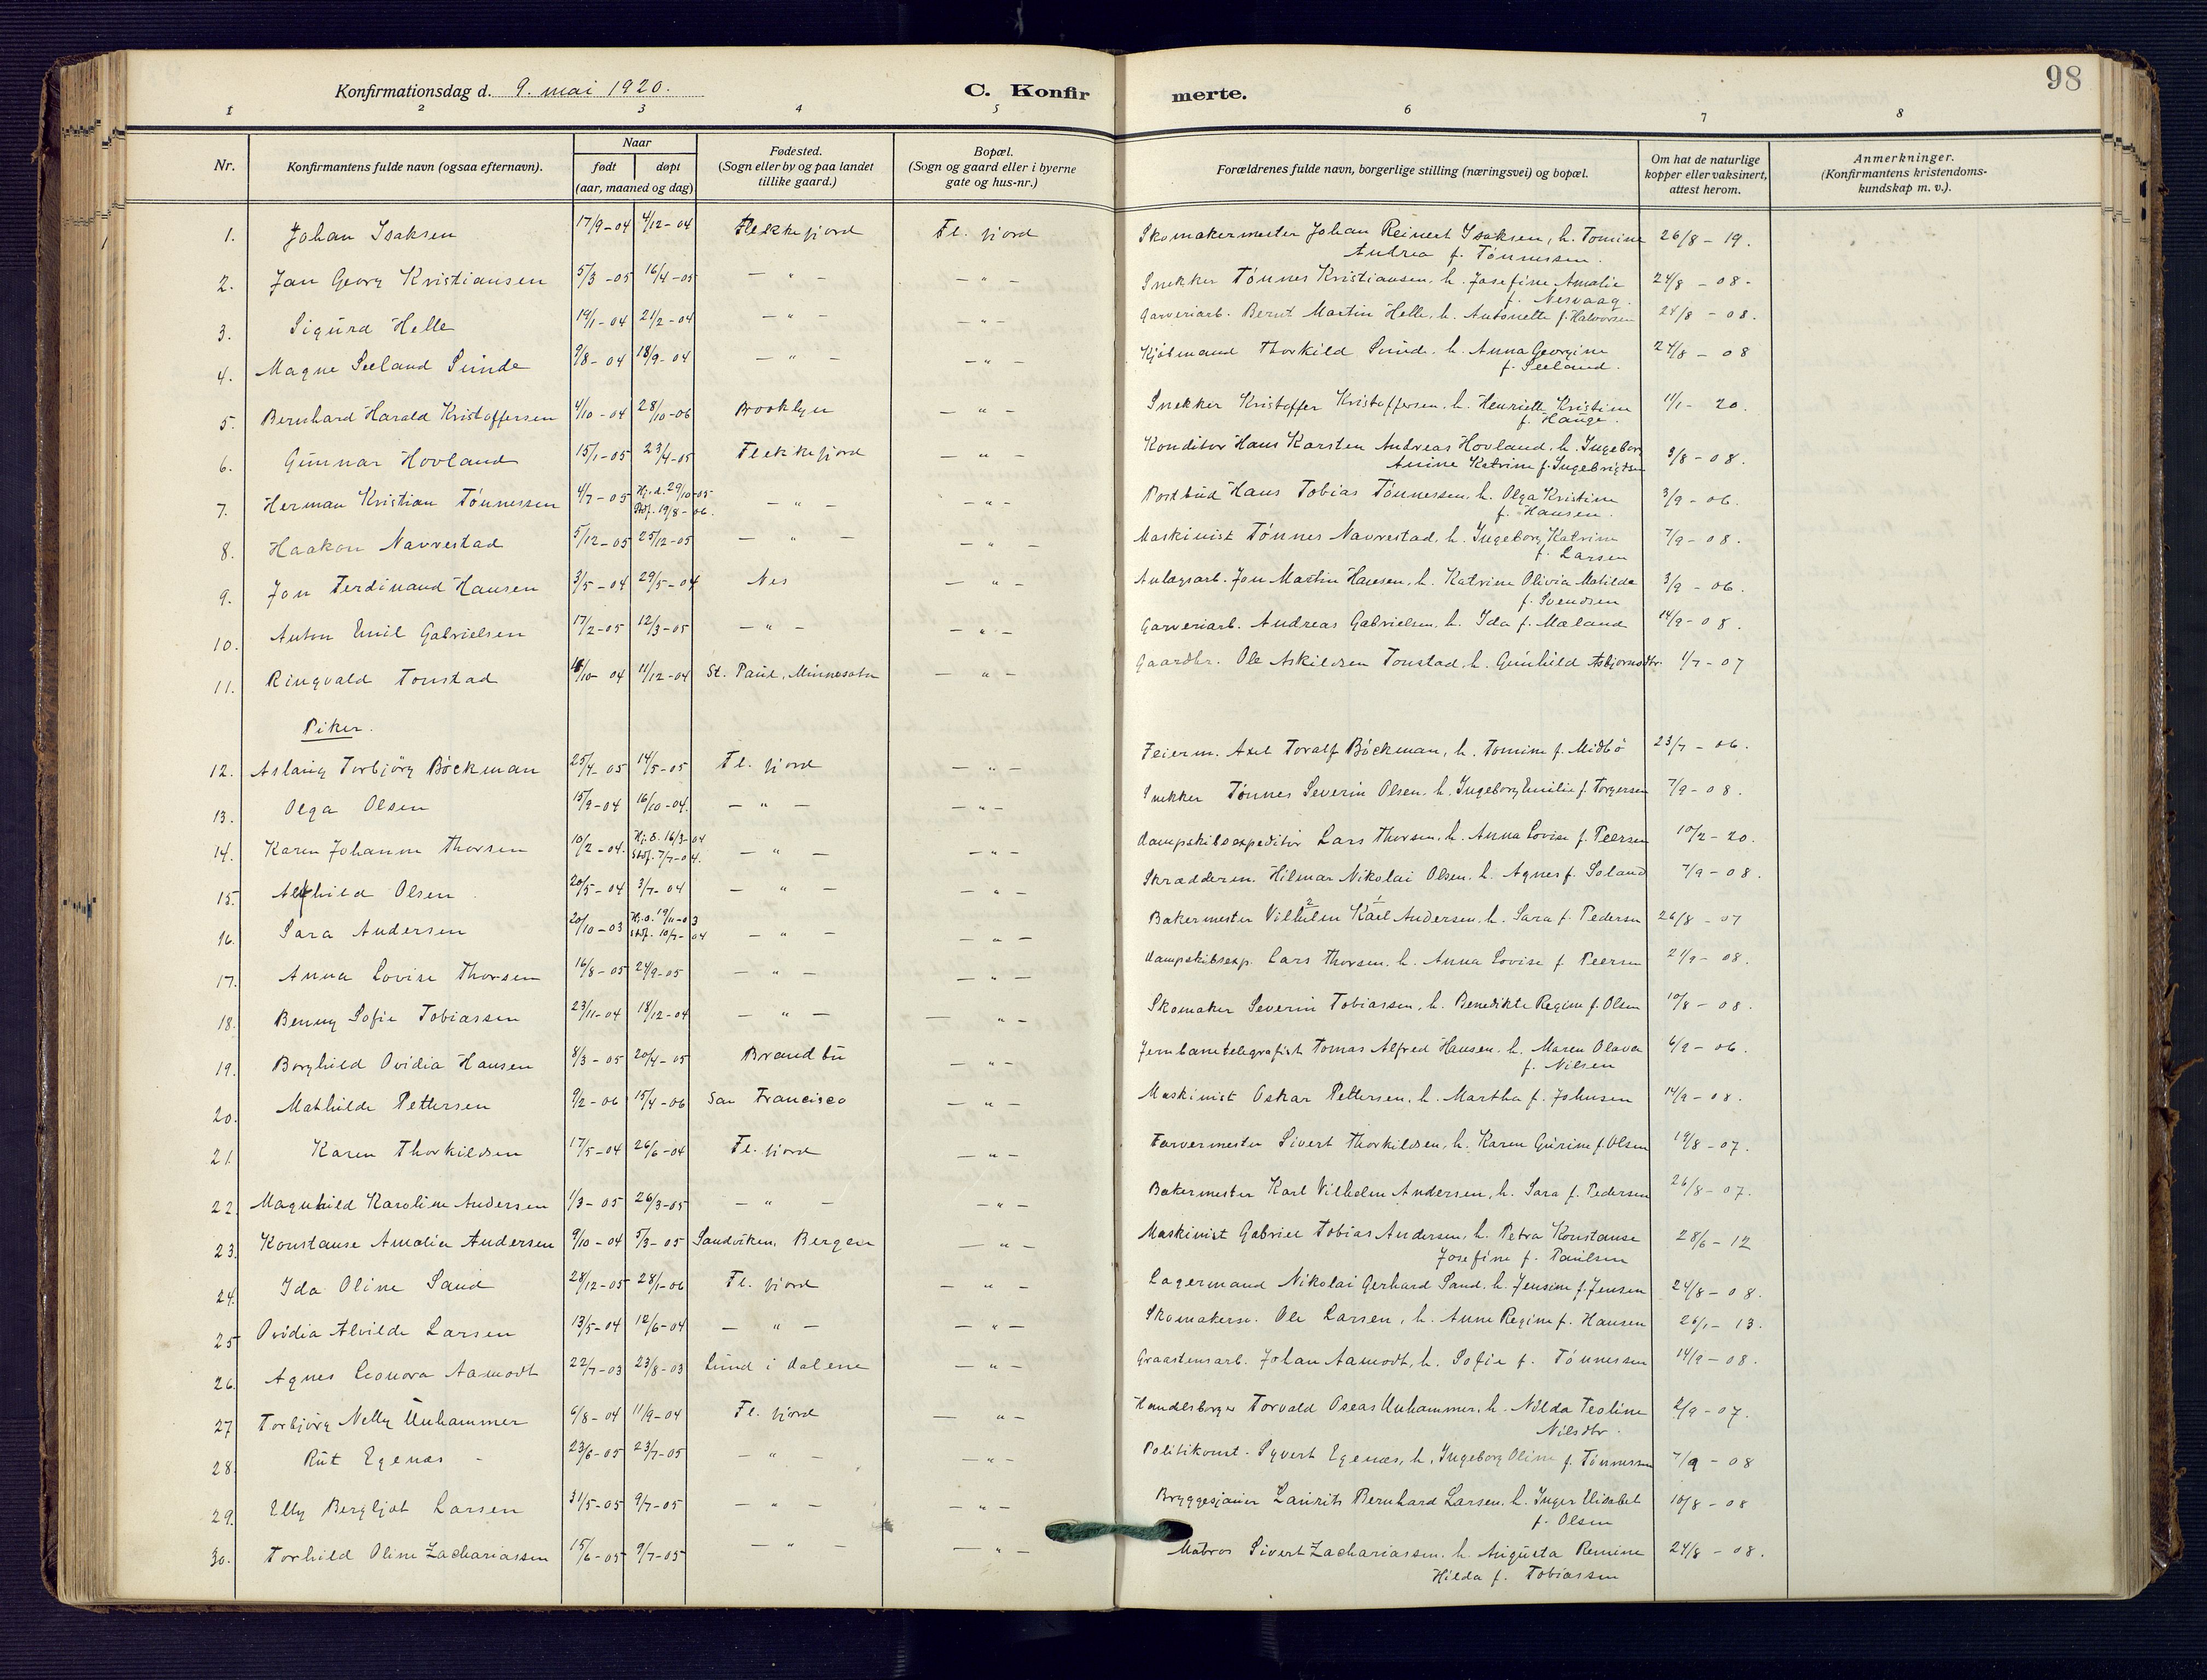 98
Konfirmationsdag d. 9. mai 1920.
C. Konfirmerte.
1 2 3 4 5 6 7 8
Nr. | Konfirmantens fulde navn (ogsaa efternavn). | Naar født døpt (aar, maaned og dag) | Fødested. (Sogn eller by og paa landet tillike gaard.) | Bopæl. (Sogn og gaard eller i byerne gate og hus-nr.) | Forældrenes fulde navn, borgerlige stilling (næringsvei) og bopæl. | Om hat de naturlige kopper eller vaksinert, attest herom. | Anmerkninger. (Konfirmantens kristendomskundskap m. v.).
1. Johan Isaksen 17/9-04 4/12-04 Flekkefjord Fl. fjord Skomakermester Johan Reinert Isaksen, h. Tomine 26/8-19.
Andrea f. Tønnessen.
2. Jan Georg Kristiansen 5/3-05 16/4-05 — " — — " — Snekker Tønnes Kristiansen, h. Josefine Amalie 24/8-08.
f. Nesvaag.
3. Sigurd Helle 19/1-04 21/2-04 — " — — " — Garveriarb. Bernt Martin Helle, h. Antonette f. Halvorsen 24/8-08.
4. Magne Seeland Sunde 9/8-04 18/9-04 — " — — " — Kjøbmand Thorkild Sunde, h. Anna Georgine 24/8-08
f. Seeland.
5. Bernhard Harald Kristoffersen 4/10-04 28/10-06 Brooklyn — " — Snekker Kristoffer Kristoffersen, h. Henriette Kristine 11/1-20.
f. Hauge.
6. Gunnar Hovland 15/1-05 23/4-05 Flekkefjord — " — Konditor Hans Karsten Andreas Hovland, h. Ingeborg 3/8-08.
Anine Katrine f. Ingebrigtsen
7. Herman Kristian Tønnessen 4/7-05 Hj.d. 29/10-05 Stdf. 19/8-06. — " — — " — Postbud Hans Tobias Tønnessen, h. Olga Kristine 3/9-06.
f. Hansen.
8. Haakon Navrestad 5/12-05 25/12-05 — " — — " — Maskinist Tønnes Navrestad, h. Ingeborg Katrine 7/9-08.
f. Larsen
9. Jon Ferdinand Hansen 3/5-04 29/5-04 Nes — " — Anlægsarb. Jon Martin Hansen, h. Katrine Olivia Matilde 3/9-06.
f. Svendsen
10. Anton Emil Gabrielsen 17/2-05 12/3-05 — " — — " — Garveriarb. Andreas Gabrielsen, h. Ida f. Mæland 14/9-08.
11. Ringvald Tonstad 4/10-04 11/12-04 St. Paul, Minnesota — " — Gaardbr. Ole Askildsen Tonstad, h. Gunhild Asbjornsdtr. 1/7-07
Piker.
12. Aslaug Torbjørg Bøckman 25/4-05 14/5-05 Fl. fjord — " — Feierm. Axel Toralf Bøckman, h. Tomine f. Midbø 23/7-06.
13. Olga Olsen 15/9-04 16/10-04. — " — — " — Snekker Tønnes Severin Olsen, h. Ingeborg Emilie f. Torgersen 7/9-08.
14. Karen Johanne Thorsen 10/2-04. Hj.d. 16/3-04 Stdf. 7/7-04. — " — — " — Dampskibsexpeditør Lars Thorsen, h. Anna Lovise f. Peersen 10/2-20.
15. Alfhild Olsen 20/5-04 3/7-04 — " — — " — Skrædderm. Hilmar Nikolai Olsen, h. Agnes f. Soland 7/9-08.
16. Sara Andersen 20/10-03 Hj.d. 19/11-03 Stdf. 10/7-04 — " — — " — Bakermester Vilhelm Karl Andersen, h. Sara f. Pedersen 26/8-07
17. Anna Lovise Thorsen 16/8-05 24/9-05 — " — — " — Dampskibsexp. Lars Thorsen, h. Anna Lovise f. Peersen 21/9-08.
18. Benny Sofie Tobiassen 23/11-04 18/12-04 — " — — " — Skomaker Severin Tobiassen, h. Benedikte Regine f. Olsen 10/8-08.
19. Borghild Ovidia Hansen 8/3-05 20/4-05 Brandbu — " — Jernbanetelegrafist Tomas Alfred Hansen, h. Maren Olava 6/9-06.
f. Nilsen
20. Mathilde Pettersen 9/2-06 15/4-06 San Francisco — " — Maskinist Oskar Pettersen, h. Martha f. Johnsen 14/9-08.
21. Karen Thorkildsen 17/5-04 26/6-04 Fl. fjord — " — Farvermester Sivert Thorkildsen, h. Karen Gurine f. Olsen 19/8-07.
22. Magnhild Karoline Andersen 1/3-05 26/3-05 — " — — " — Bakermester Karl Vilhelm Andersen, h. Sara f. Pedersen 26/8-07.
23. Konstanse Amalie Andersen 9/10-04 5/3-05 Sandviken, Bergen — " — Maskinist Gabriel Tobias Andersen, h. Petra Konstanse 28/6-12
Josefine f. Paulsen
24. Ida Oline Sand 28/12-05 28/1-06 Fl. fjord — " — Lagermand Nikolai Gerhard Sand, h. Jensine f. Jensen 24/8-08.
25 Ovidia Alvilde Larsen 13/5-04 12/6-04 — " — — " — Skomakersv. Ole Larsen, h. Anne Regine f. Hansen 26/1-13.
26. Agnes Leonora Aamodt 22/7-03 23/8-03 Lund i Dalene — " — Graastensarb. Johan Aamodt, h. Sofie f. Tønnessen 14/9-08.
27 Torbjørg Nelly Unhammer 6/8-04 11/9-04 Fl. fjord — " — Handelsborger Torvald Oseas Unhammer, h. Nilda Teoline 2/9-07.
Nilsdtr.
28. Rut Egenæs 23/6-05 23/7-05 — " — — " — Politikonst. Syvert Egenæs, h. Ingeborg Oline f. Tønnessen 7/9-08
29. Elly Bergljot Larsen 31/5-05 9/7-05 — " — — " — Bryggesjauer Laurits Bernhard Larsen, h. Inger Elisabet 10/8-08
f. Olsen
30. Torhild Oline Zachariassen 15/6-05 9/7-05 — " — — " — Matros Sivert Zachariassen, h. Augusta Remine 24/8-08.
Hilda f. Tobiassen